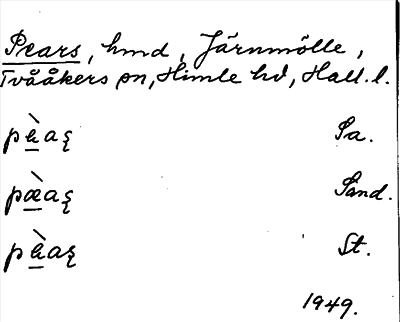 Pears, hmd, Järnmölle,
Tvååkers sn, Himle hd, Hall. l.
Sa.
pæ̀aꞩ Sand.
St.
1949.